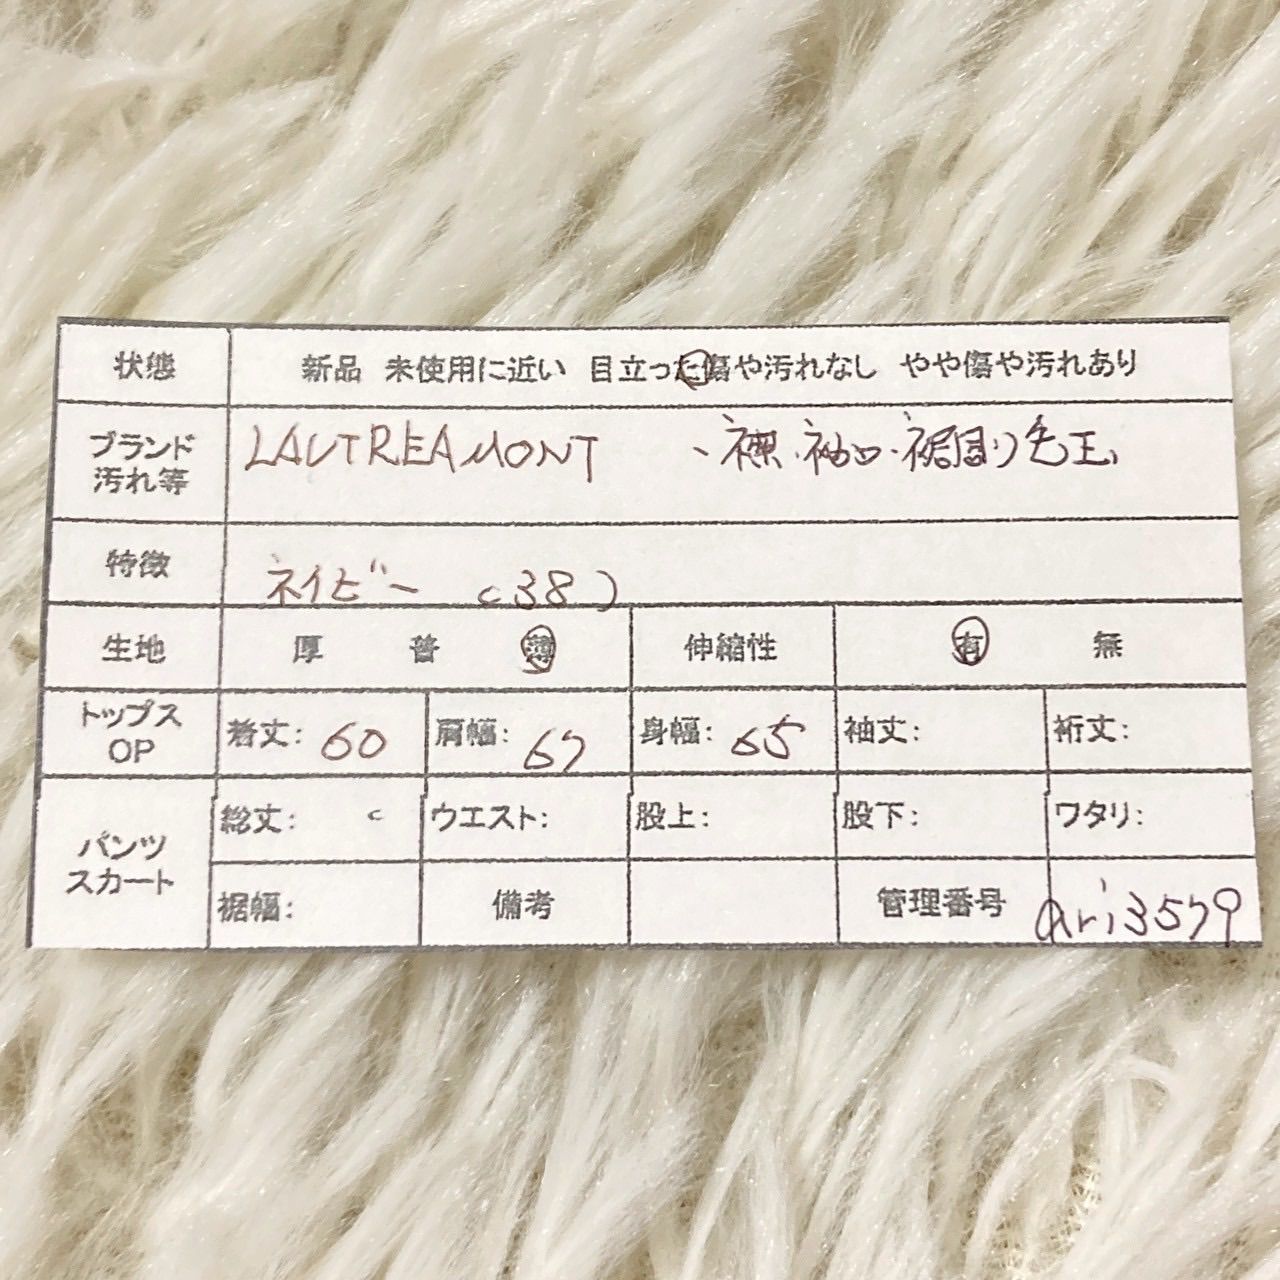 状態 新品 未使用に近い 目立った傷や汚れなし やや傷や汚れあり
ブランド 汚れ等 LAUTREAMONT 、襟・袖口・裾周り毛玉
特徴 ネイビー (38)
生地 厚 普 薄 伸縮性 有 無
トップス OP 着丈: 60 肩幅: 67 身幅: 65 袖丈: 裄丈:
パンツ スカート 総丈: ウエスト: 股上: 股下: ワタリ:
裾幅: 備考 管理番号 ari3579